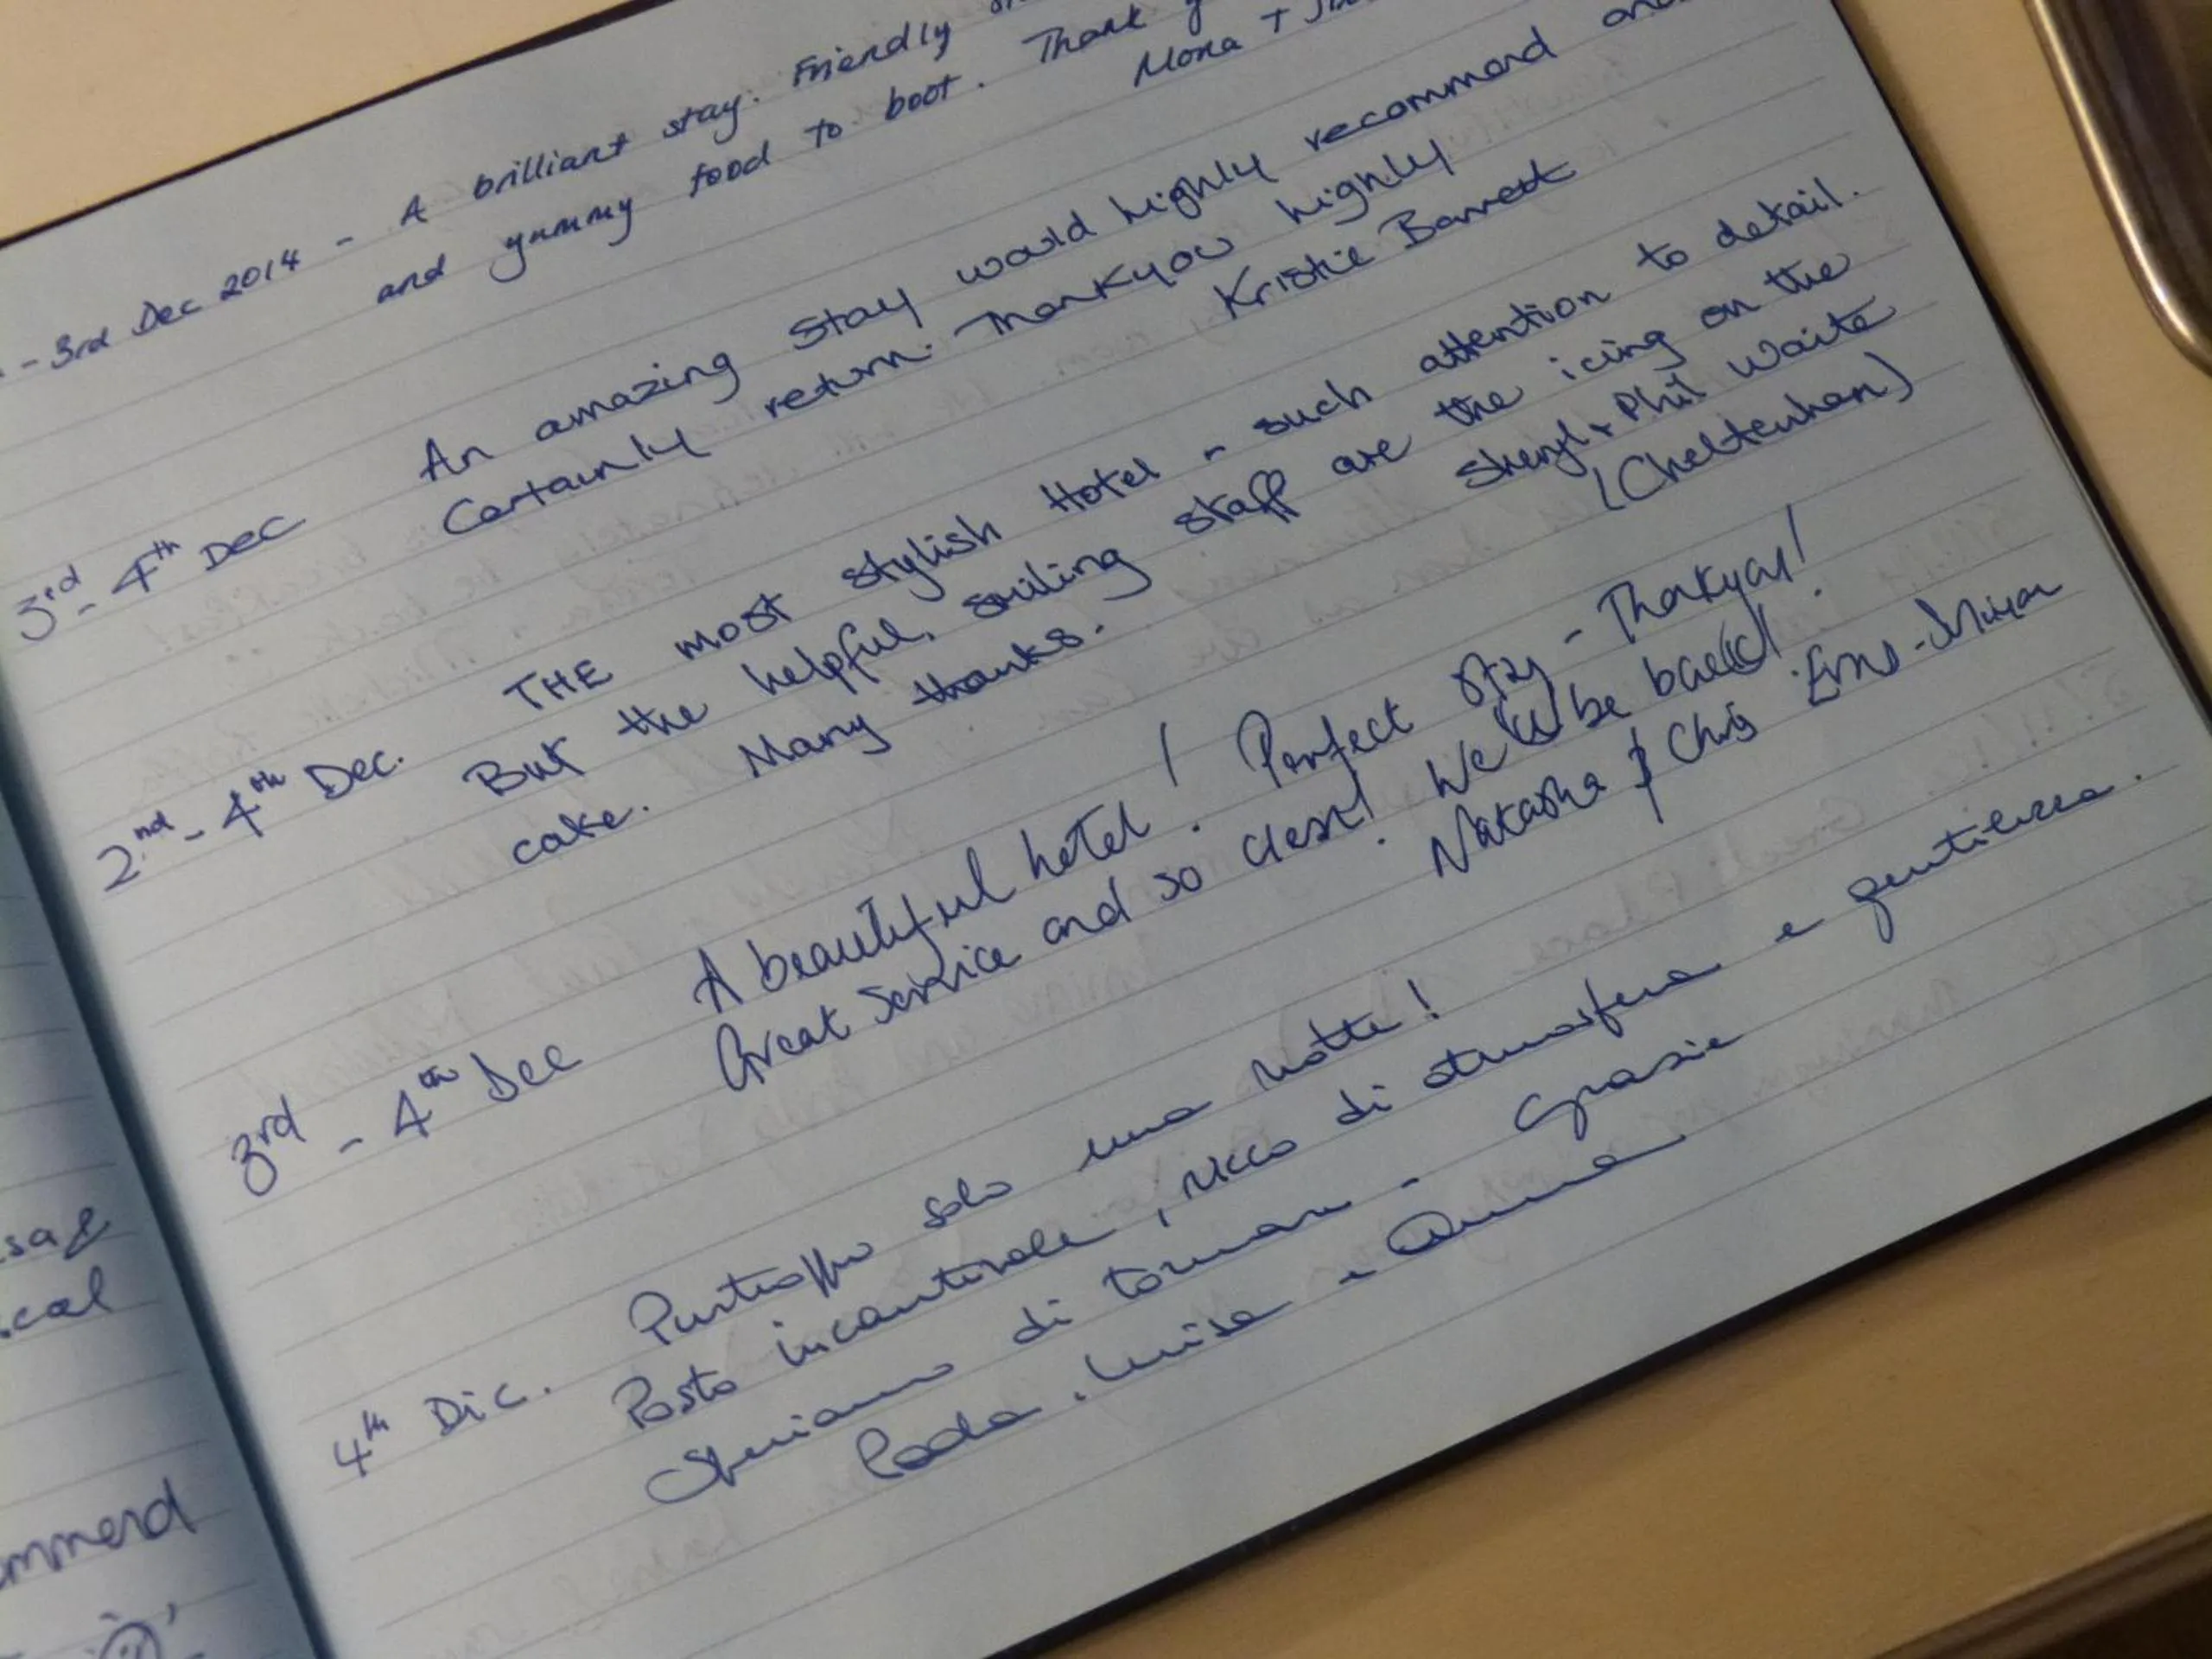 - 3rd Dec 2014 - A brilliant stay. Friendly
and yummy food to boot. Thank
Mona +
3rd - 4th Dec An amazing stay would highly recommend and
Certainly return. Thankyou highly
Kristie Barrett
2nd - 4th Dec. THE most stylish Hotel - such attention to detail.
But the helpful, smiling staff are the icing on the
cake. Many thanks. Sheryl & Phil Waite
(Cheltenham)
3rd - 4th Dec A beautiful hotel! Perfect stay - Thankyou!
Great Service and so clean! We'll be back!
Natasha & Chris
4th Dic. Purtroppo solo una notte!
Posto incantevole, ricco di atmosfera e gentilezza.
Speriamo di tornare. Grazie
Paola. Luisa e
sage
ical
ommend